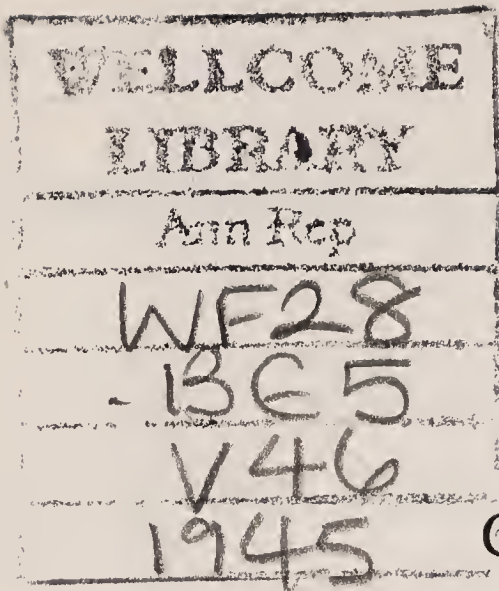 WELLCOME
LIBRARY
Ann Rep
WF28
.BE5
V46
1945